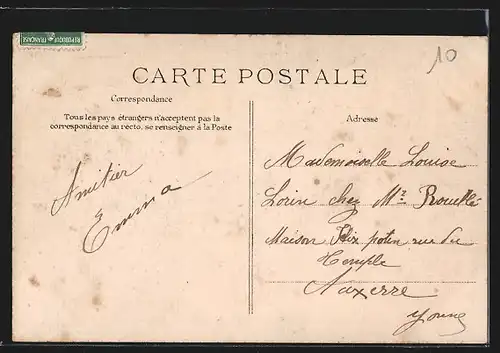 RÉPUBLIQUE FRANÇAISE
10
CARTE POSTALE
Correspondance
Tous les pays étrangers n'acceptent pas la
correspondance au recto, se renseigner à la Poste
Adresse
Amitier
Emma
Mademoiselle Louise
Lorin chez Mr
Maison Félix potin rue du
Temple
Auxerre
Yonne